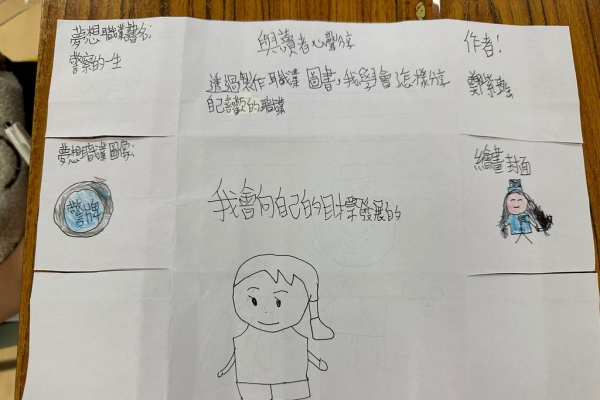 夢想職業書名:
警察的一生
與讀者心聲分享
透過製作職業圖書,我學會怎樣分享
自己喜歡的職業
作者:
鄭紫瑤
夢想職業圖像:
警牌
我會向自己的目標發展的
繪畫封面